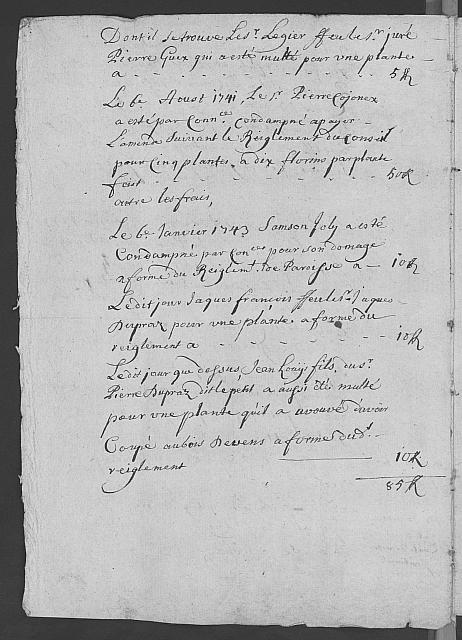 Dont il se trouve Le Sr. Legier ffeu le Sr. juré
Pierre Guex qui a esté multé pour une plante
a - - - - - - - - 5 fl
Le 6e. Aoust 1741, Le Sr. Pierre
a esté par Connce. Condampné a payer
Lamende Suivant le Reiglement du Conseil
pour Cinq plantes, a dix florins par plante
feist - - - - - - - - 50 fl
outre les frais,
Le 6e. Janvier 1743 Samson Joly a esté
Condampné par Connce pour son domage
a forme du Reiglemt. de Paroisse a - 10 fl
Le dit jour Jaques françois ffeu le Sr. Jaques
Dupraz pour une plante a forme du
reiglement a - - - - - - 10 fl
Le dit jour que dessus, Jean Louÿs fils, du Sr.
Pierre Dupraz dit le petit, a aussi été multé
pour une plante qu'il a avoué d'avoir
Coupé au bois Devens a forme dud.
reiglement 10 fl.
85 fl